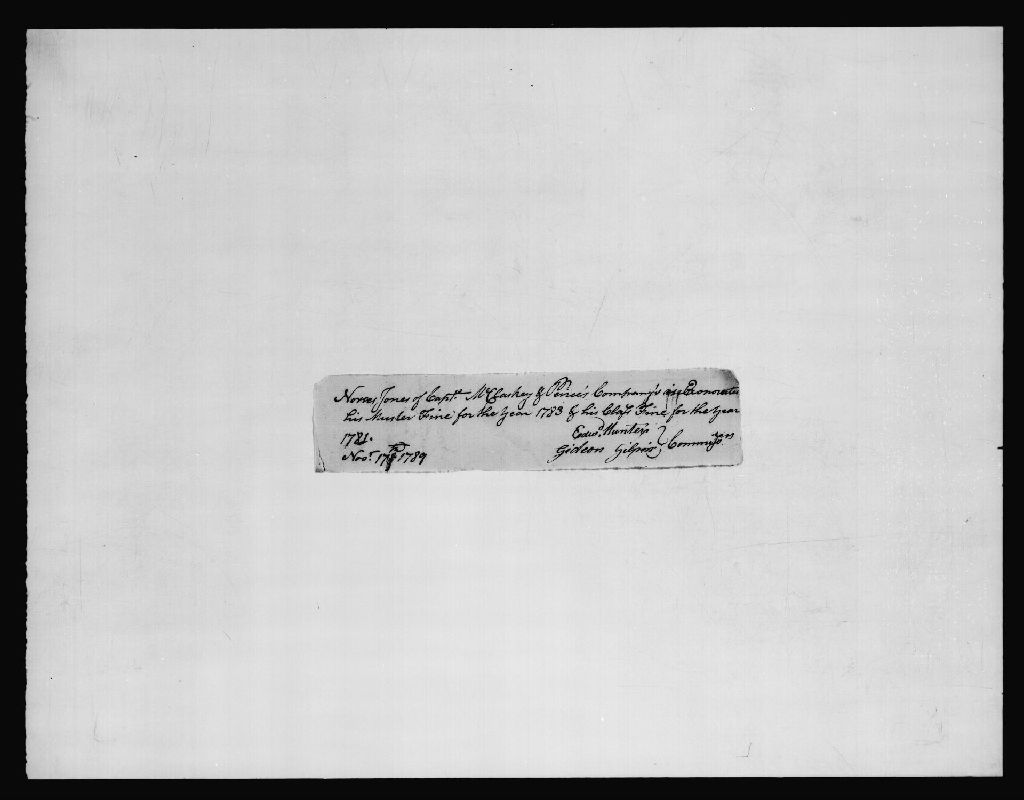 Jones of Capt. McCloskey & Peirce's Company's is Exonorated
his Muster Fine for the year 1783 & his Class Fine for the year
1781.
Novr. 17th 1789
Edwd. Hunter
Gideon Gilpin } Commissrs